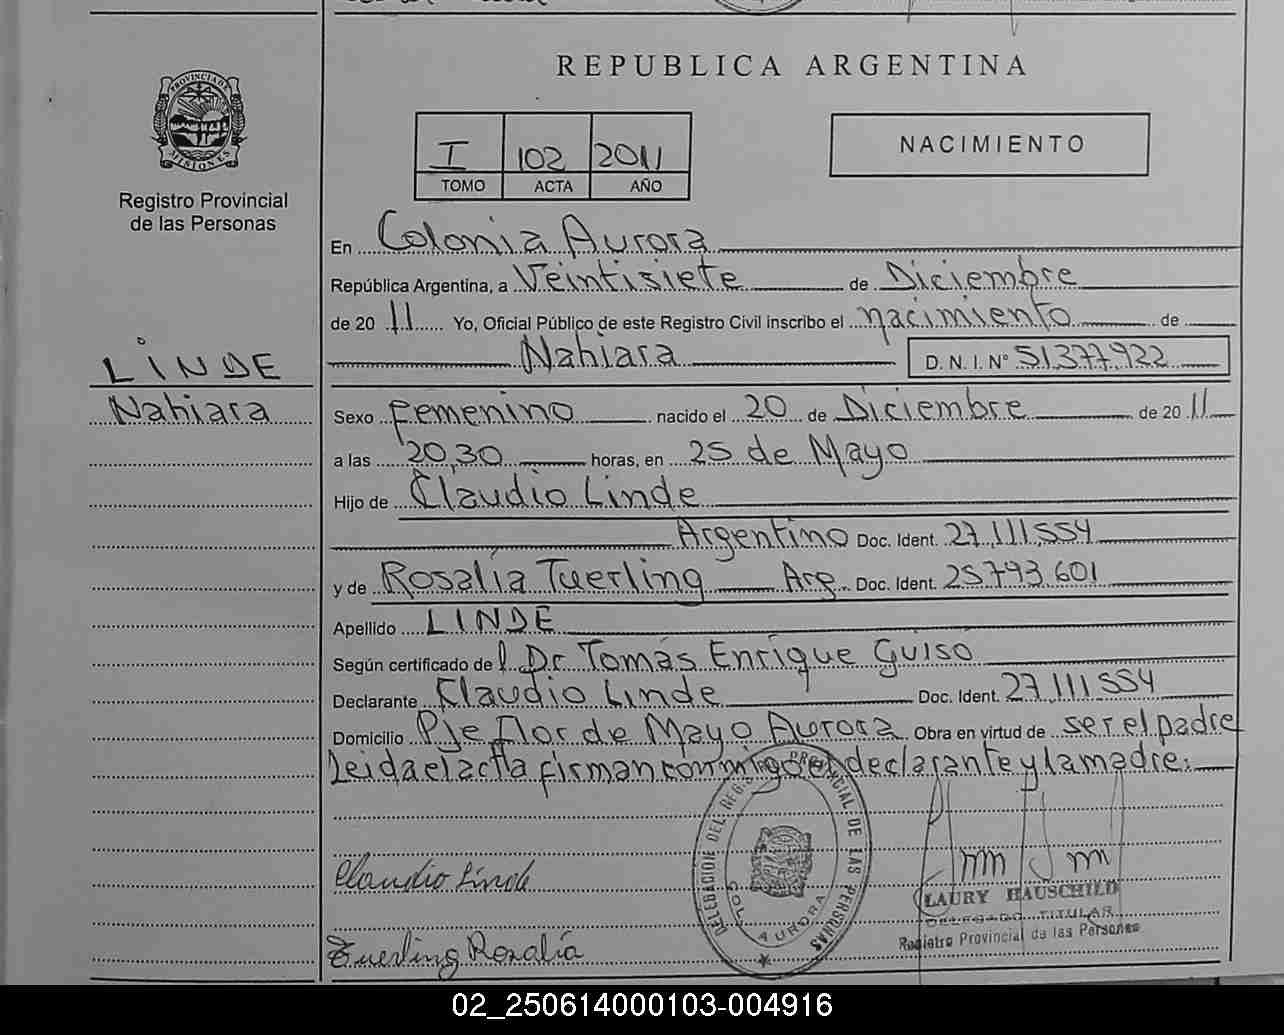 REPUBLICA ARGENTINA
PROVINCIA DE MISIONES
Registro Provincial
de las Personas
I 102 2011
TOMO ACTA AÑO
NACIMIENTO
En Colonia Aurora
República Argentina, a Veintisiete de Diciembre
de 20 11 Yo, Oficial Público de este Registro Civil inscribo el nacimiento de
Nahiara D. N. I. N° 51.377.922
LINDE
Nahiara
Sexo Femenino nacido el 20 de Diciembre de 20 11
a las 20,30 horas, en 25 de Mayo
Hijo de Claudio Linde
Argentino Doc. Ident. 27.111.554
y de Rosalía Tuerling Arg. Doc. Ident. 25.793.601
Apellido LINDE
Según certificado del Dr Tomás Enrique Guiso
Declarante Claudio Linde Doc. Ident. 27.111.554
Domicilio Pje Flor de Mayo Aurora Obra en virtud de ser el padre
Leida el acta firman conmigo el declarante y la madre.
DELEGACION DEL REG. PROVINCIAL DE LAS PERSONAS
COL. AURORA
Claudio Linde
LAURY HAUSCHILD
DELEGADO TITULAR
Registro Provincial de las Personas
Tuerling Rosalía
02_250614000103-004916